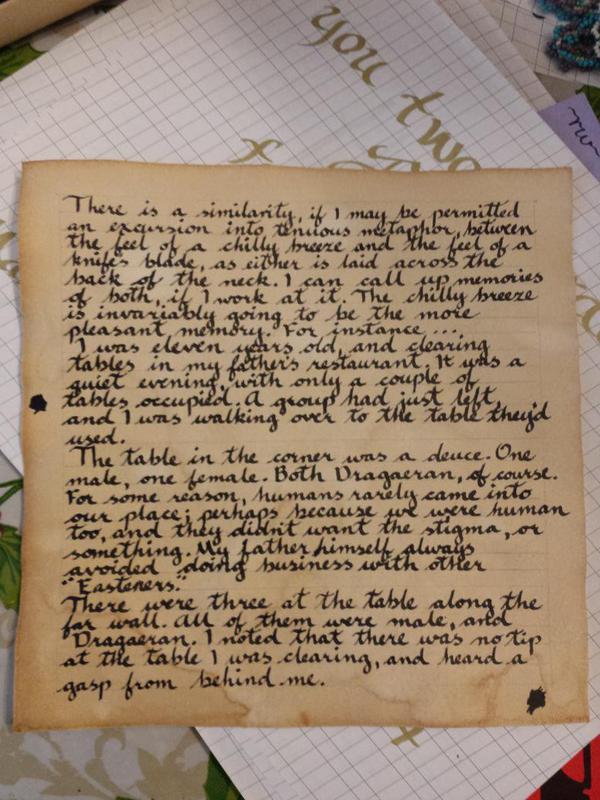 you two
f
rw
There is a similarity, if I may be permitted
an excursion into tenuous metaphor, between
the feel of a chilly breeze and the feel of a
knife's blade, as either is laid across the
back of the neck. I can call up memories
of both, if I work at it. The chilly breeze
is invariably going to be the more
pleasant memory. For instance ...
I was eleven years old, and clearing
tables in my father's restaurant. It was a
quiet evening, with only a couple of
tables occupied. A group had just left,
and I was walking over to the table they'd
used.
The table in the corner was a deuce. One
male, one female. Both Dragaeran, of course.
For some reason, humans rarely came into
our place; perhaps because we were human
too, and they didn't want the stigma, or
something. My father himself always
avoided doing business with other
"Easteners."
There were three at the table along the
far wall. All of them were male, and
Dragaeran. I noted that there was no tip
at the table I was clearing, and heard a
gasp from behind me.